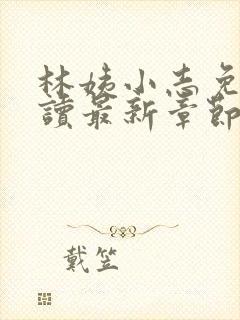 林姨小志免
讀最新章節
戴笠